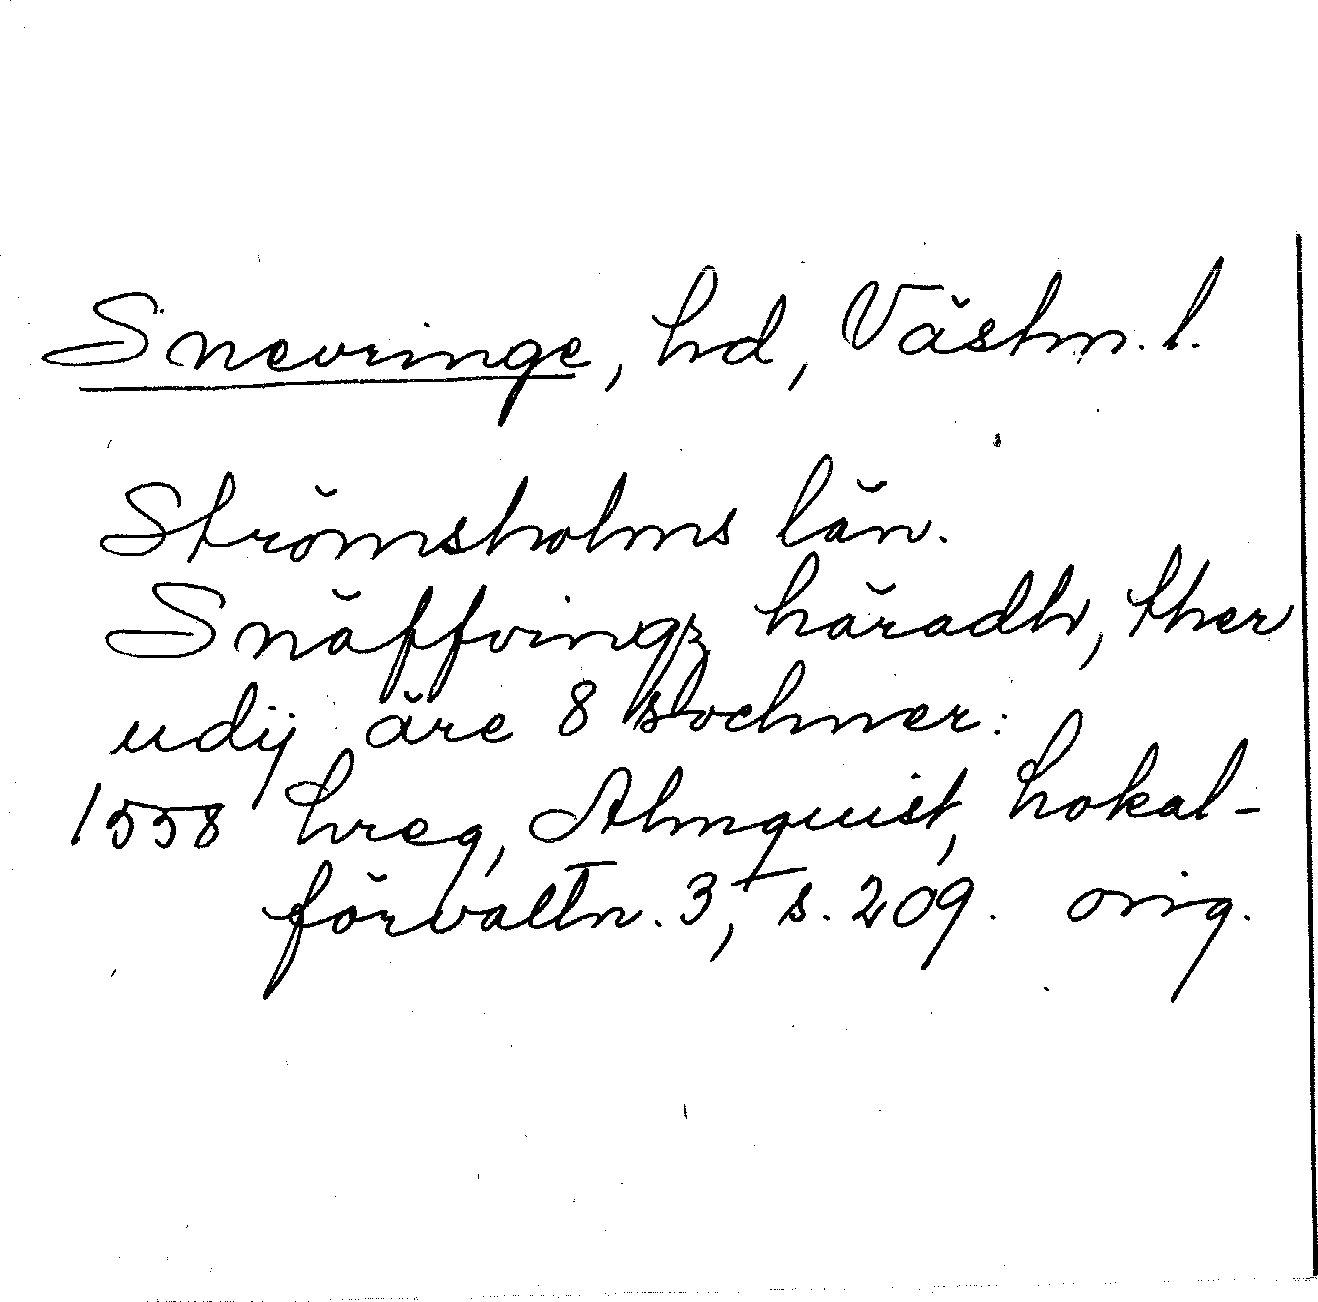 Snevringe, hd, Västm. l.
Strömsholms län.
Snäffvingz häradh, ther
udij äre 8 sochner:
1558 hreg, Almquist, Lokal-
förvaltn. 3, s. 209. orig.